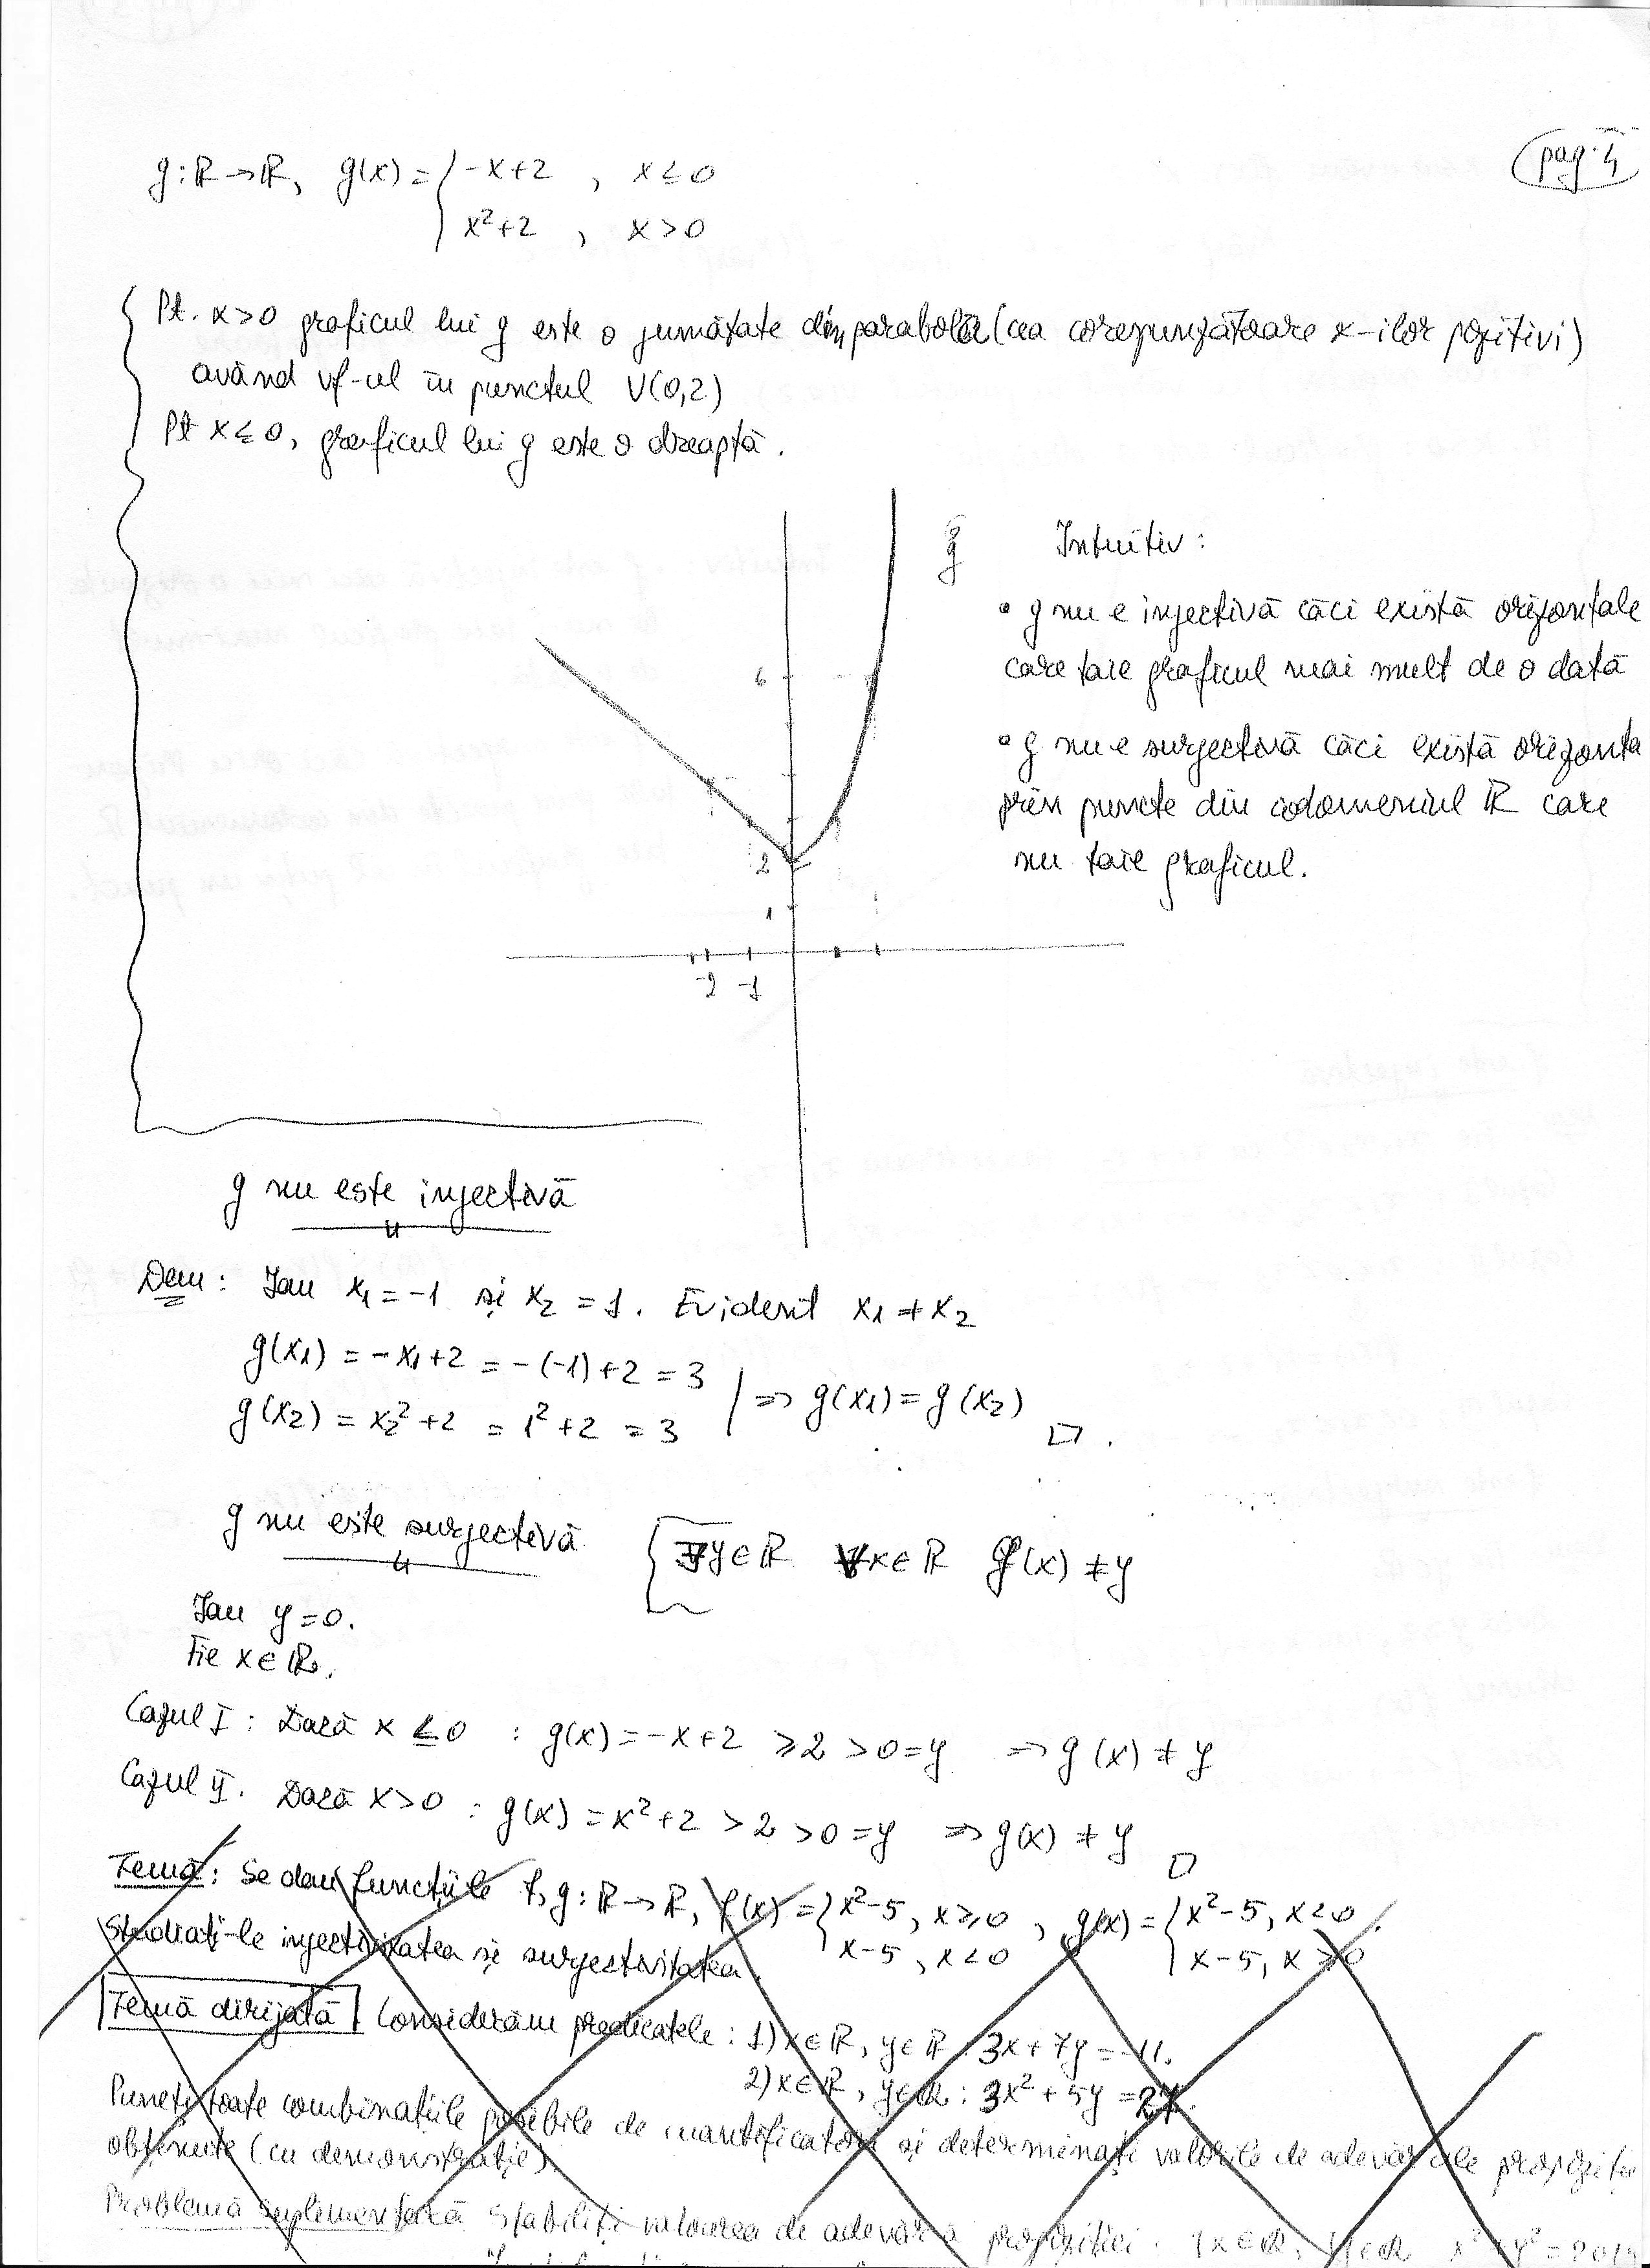 pag. 4
g : ℝ → ℝ, g(x) = { -x+2 , x ≤ 0
x²+2 , x > 0
Pt. x>0 graficul lui g este o jumătate din parabola (cea corespunzătoare x-ilor pozitivi)
având vf-ul în punctul V(0,2)
Pt x ≤ 0, graficul lui g este o dreaptă.
g
Intuitiv:
• g nu e injectivă căci există orizontale
care taie graficul mai mult de o dată
• g nu e surjectivă căci există orizonta
prin puncte din codomeniul ℝ care
nu taie graficul.
6
2
1
-2 -1
g nu este injectivă
Dem: Iau x₁ = -1 și x₂ = 1. Evident x₁ ≠ x₂
g(x₁) = -x₁+2 = -(-1)+2 = 3
g(x₂) = x₂²+2 = 1²+2 = 3 | ⇒ g(x₁) = g(x₂) □.
g nu este surjectivă { ∃y∈ℝ ∀x∈ℝ g(x) ≠ y
Iau y = 0.
Fie x∈ℝ.
Cazul I : Dacă x ≤ 0 : g(x) = -x+2 ⩾ 2 > 0 = y ⇒ g(x) ≠ y
Cazul II. Dacă x>0 : g(x) = x²+2 > 2 > 0 = y ⇒ g(x) ≠ y □
Temă: Se dau funcțiile f, g : ℝ → ℝ, f(x) = { x²-5, x ⩾ 0 , g(x) = { x²-5, x<0 .
x-5, x<0 x-5, x ⩾ 0
Studiați-le injectivitatea și surjectivitatea.
Temă dirijată Considerăm predicatele: 1) x∈ℝ, y∈ℝ 3x+7y = -11.
2) x∈ℝ, y∈ℝ : 3x²+5y = 27.
Puneți toate combinațiile posibile de cuantificatori și determinați valorile de adevăr ale propoziții
obținute (cu demonstrație).
Problemă suplimentară Stabiliți valoarea de adevăr a propoziției: